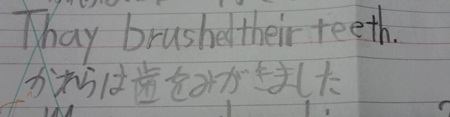 Thay brushed their teeth.
かれらは歯をみがきました